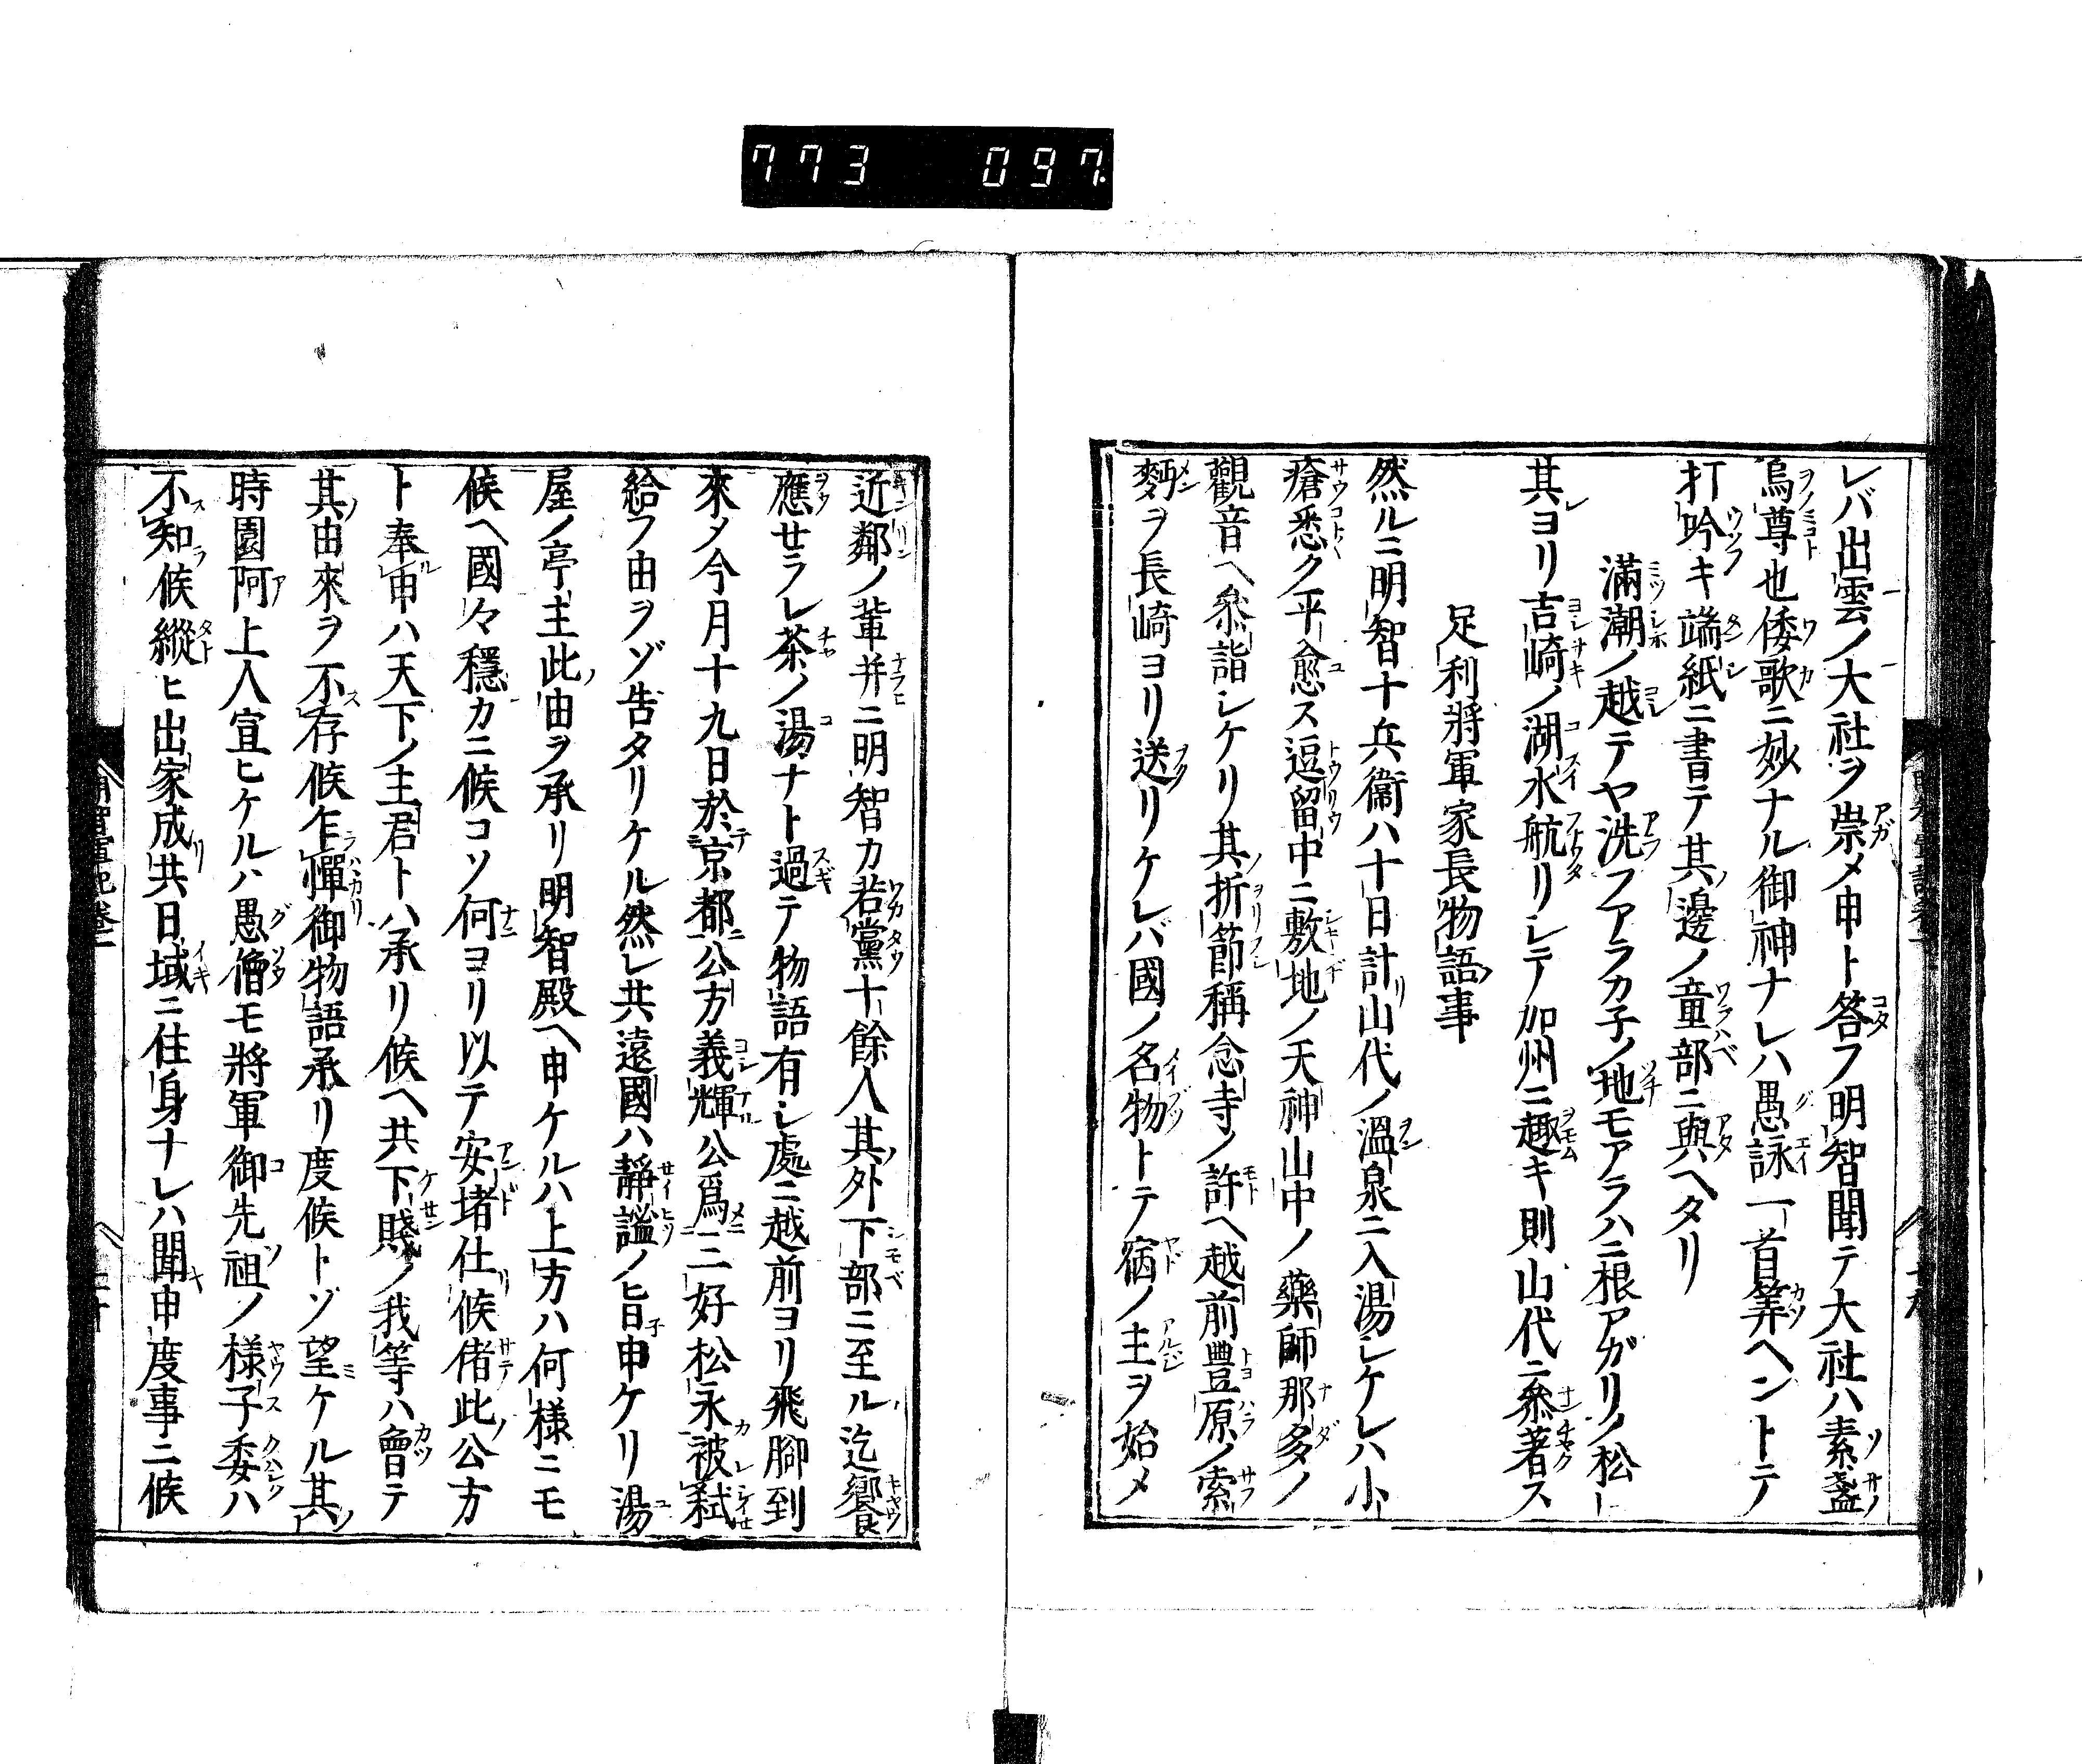 773 097
レバ出雲ノ大社ヲ崇メ申ト答フ明智聞テ大社ハ素盞
烏尊也倭歌ニ妙ナル御神ナレハ愚詠一首筭ヘントテ
打吟キ端紙ニ書テ其邊ノ童部ニ與ヘタリ
滿潮ノ越テヤ洗フアラカ子ノ地モアラハニ根アガリノ松ト
其ヨリ吉崎ノ湖水航リシテ加州ニ趣キ則山代ニ叅著ス
足利將軍家長物語事
然ルニ明智十兵衞ハ十日計山代ノ溫泉ニ入湯シケレハ小
瘡悉ク平愈ス逗留中ニ敷地ノ天神山中ノ藥師那多ノ
觀音ヘ叅詣シケリ其折節稱念寺ノ許ヘ越前豊原ノ索
麪ヲ長崎ヨリ送リケレバ國ノ名物トテ宿ノ主ヲ始メ
近鄰ノ輩并ニ明智カ若黨十餘人其外下部ニ至ル迄饗
應セラレ茶ノ湯ナト過テ物語有シ處ニ越前ヨリ飛脚到
來メ今月十九日於京都公方義輝公爲三好松永被弑
給フ由ヲゾ告タリケル然レ共遠國ハ靜謐ノ旨申ケリ湯
屋ノ亭主此由ヲ承リ明智殿ヘ申ケルハ上方ハ何樣ニモ
候ヘ國々穩カニ候コソ何ヨリ以テ安堵仕候偖此公方
ト奉申ハ天下ノ主君トハ承リ候ヘ共下賤ノ我等ハ曾テ
其由來ヲ不存候乍憚御物語承リ度候トゾ望ケル其
時園阿上人宣ヒケルハ愚僧モ將軍御先祖ノ樣子委ハ
不知候縱ヒ出家成共日域ニ住身ナレハ聞申度事ニ候
明智軍記卷一